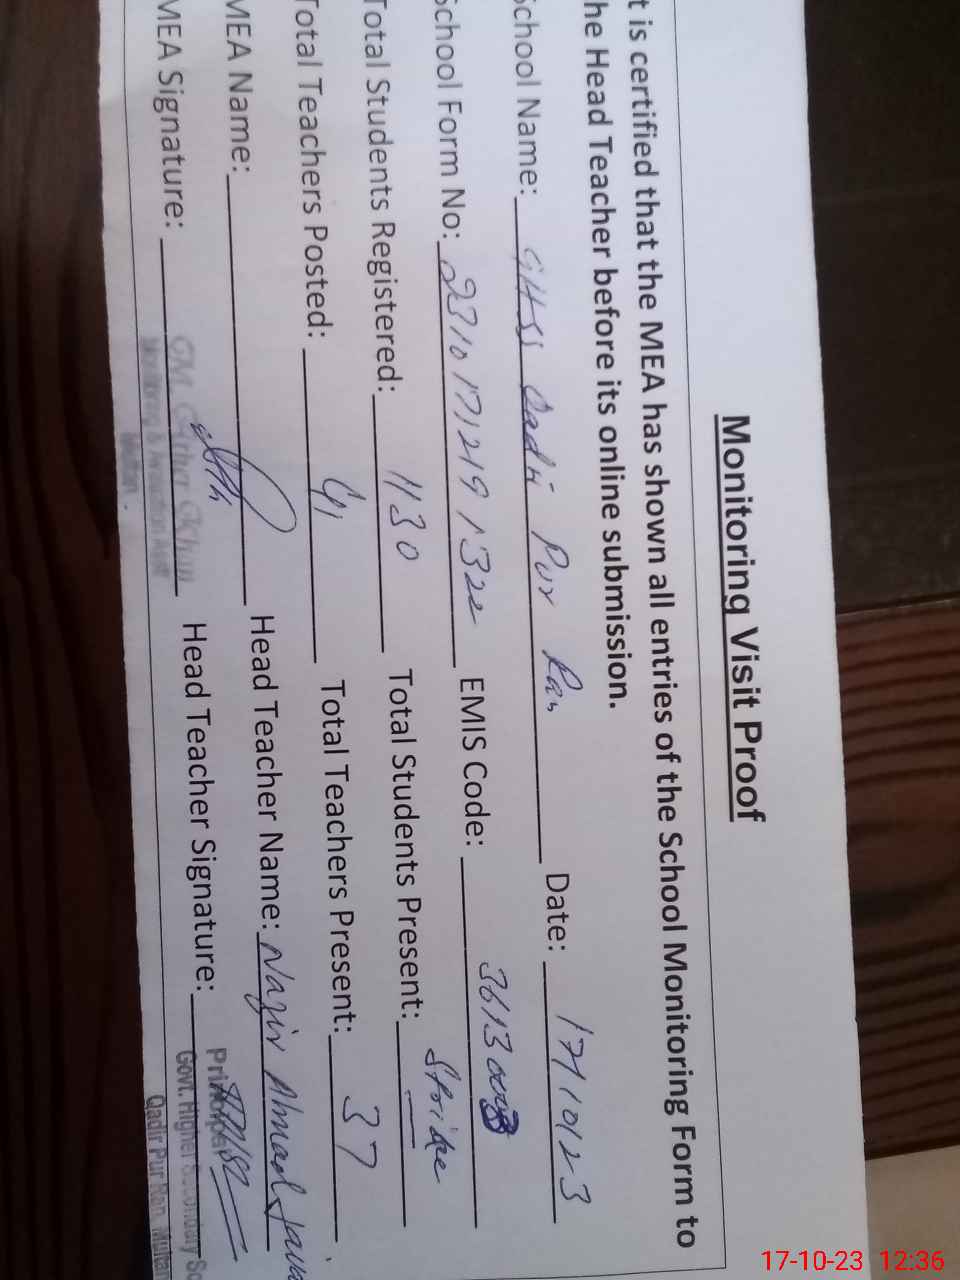 Monitoring Visit Proof
t is certified that the MEA has shown all entries of the School Monitoring Form to
he Head Teacher before its online submission.
School Name: GHSS Qadir Pur Ran Date: 17/10/23
School Form No: 2310171219 1322 EMIS Code: 3613
Total Students Registered: 1130 Total Students Present: Strike
Total Teachers Posted: 41 Total Teachers Present: 37
MEA Name: Head Teacher Name: Nazir Ahmad
MEA Signature: Head Teacher Signature:
Principal
Govt. Higher Secondary Sc
Qadir Pur Ran, Multan
Multan.
17-10-23 12:36